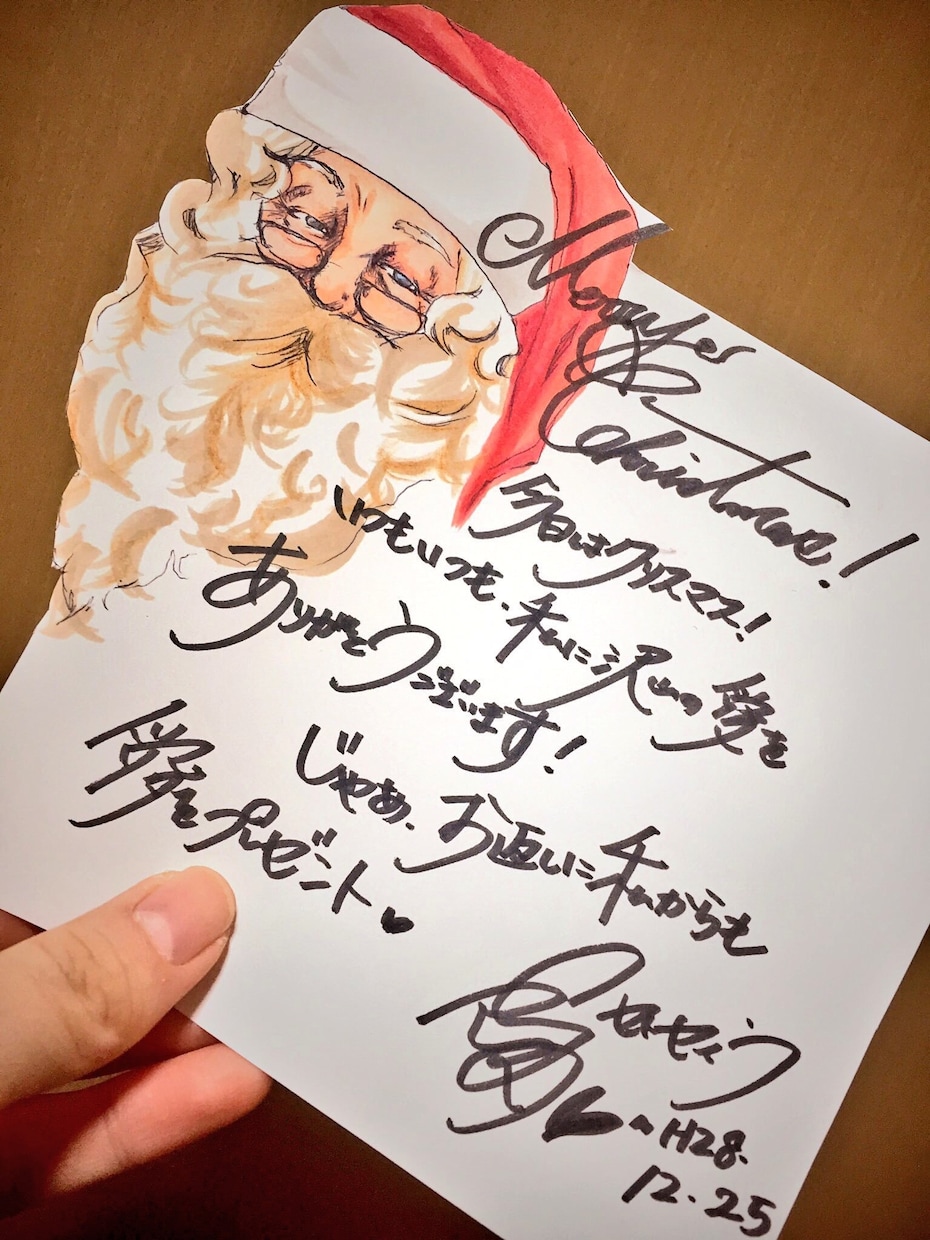 Merry
Christmas!
今日はクリスマス!
いつもいつも、私に沢山の愛を
ありがとうございます!
じゃあ、お返しに私からも
愛をプレゼント♥
愛♥~H28.
12.25